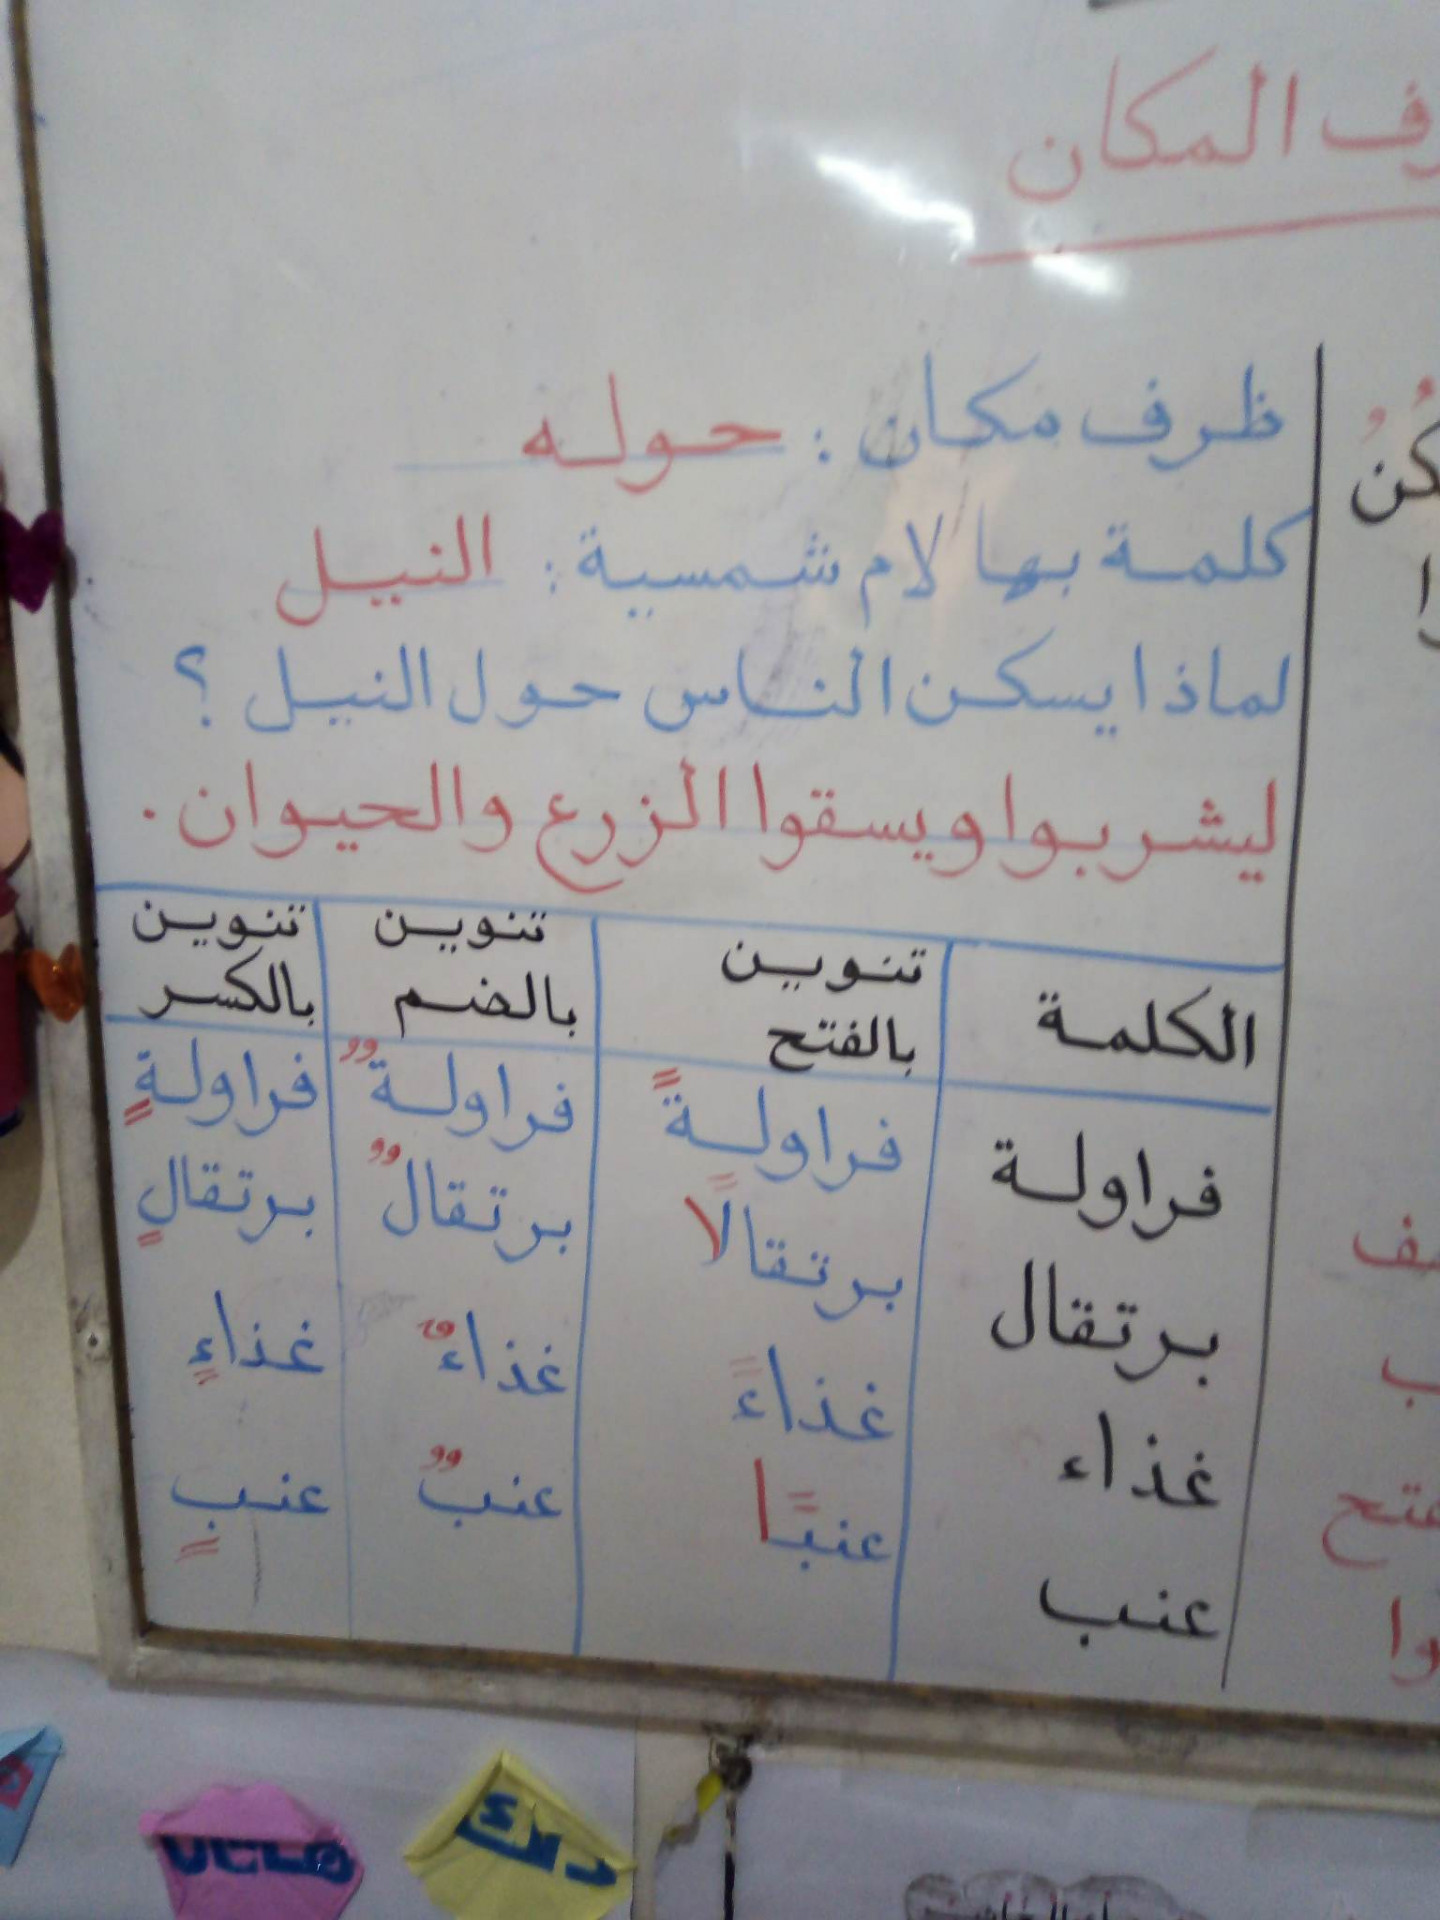 المكان
ظرف مكان : حوله
كلمة بها لام شمسية : النيل
لماذا يسكن الناس حول النيل ؟
ليشربوا ويسقوا الزرع والحيوان .
الكلمة تنوين بالفتح تنوين بالضم تنوين بالكسر
فراولة فراولةً فراولةٌ فراولةٍ
برتقال برتقالًا برتقالٌ برتقالٍ
غذاء غذاءً غذاءٌ غذاءٍ
عنب عنبًا عنبٌ عنبٍ